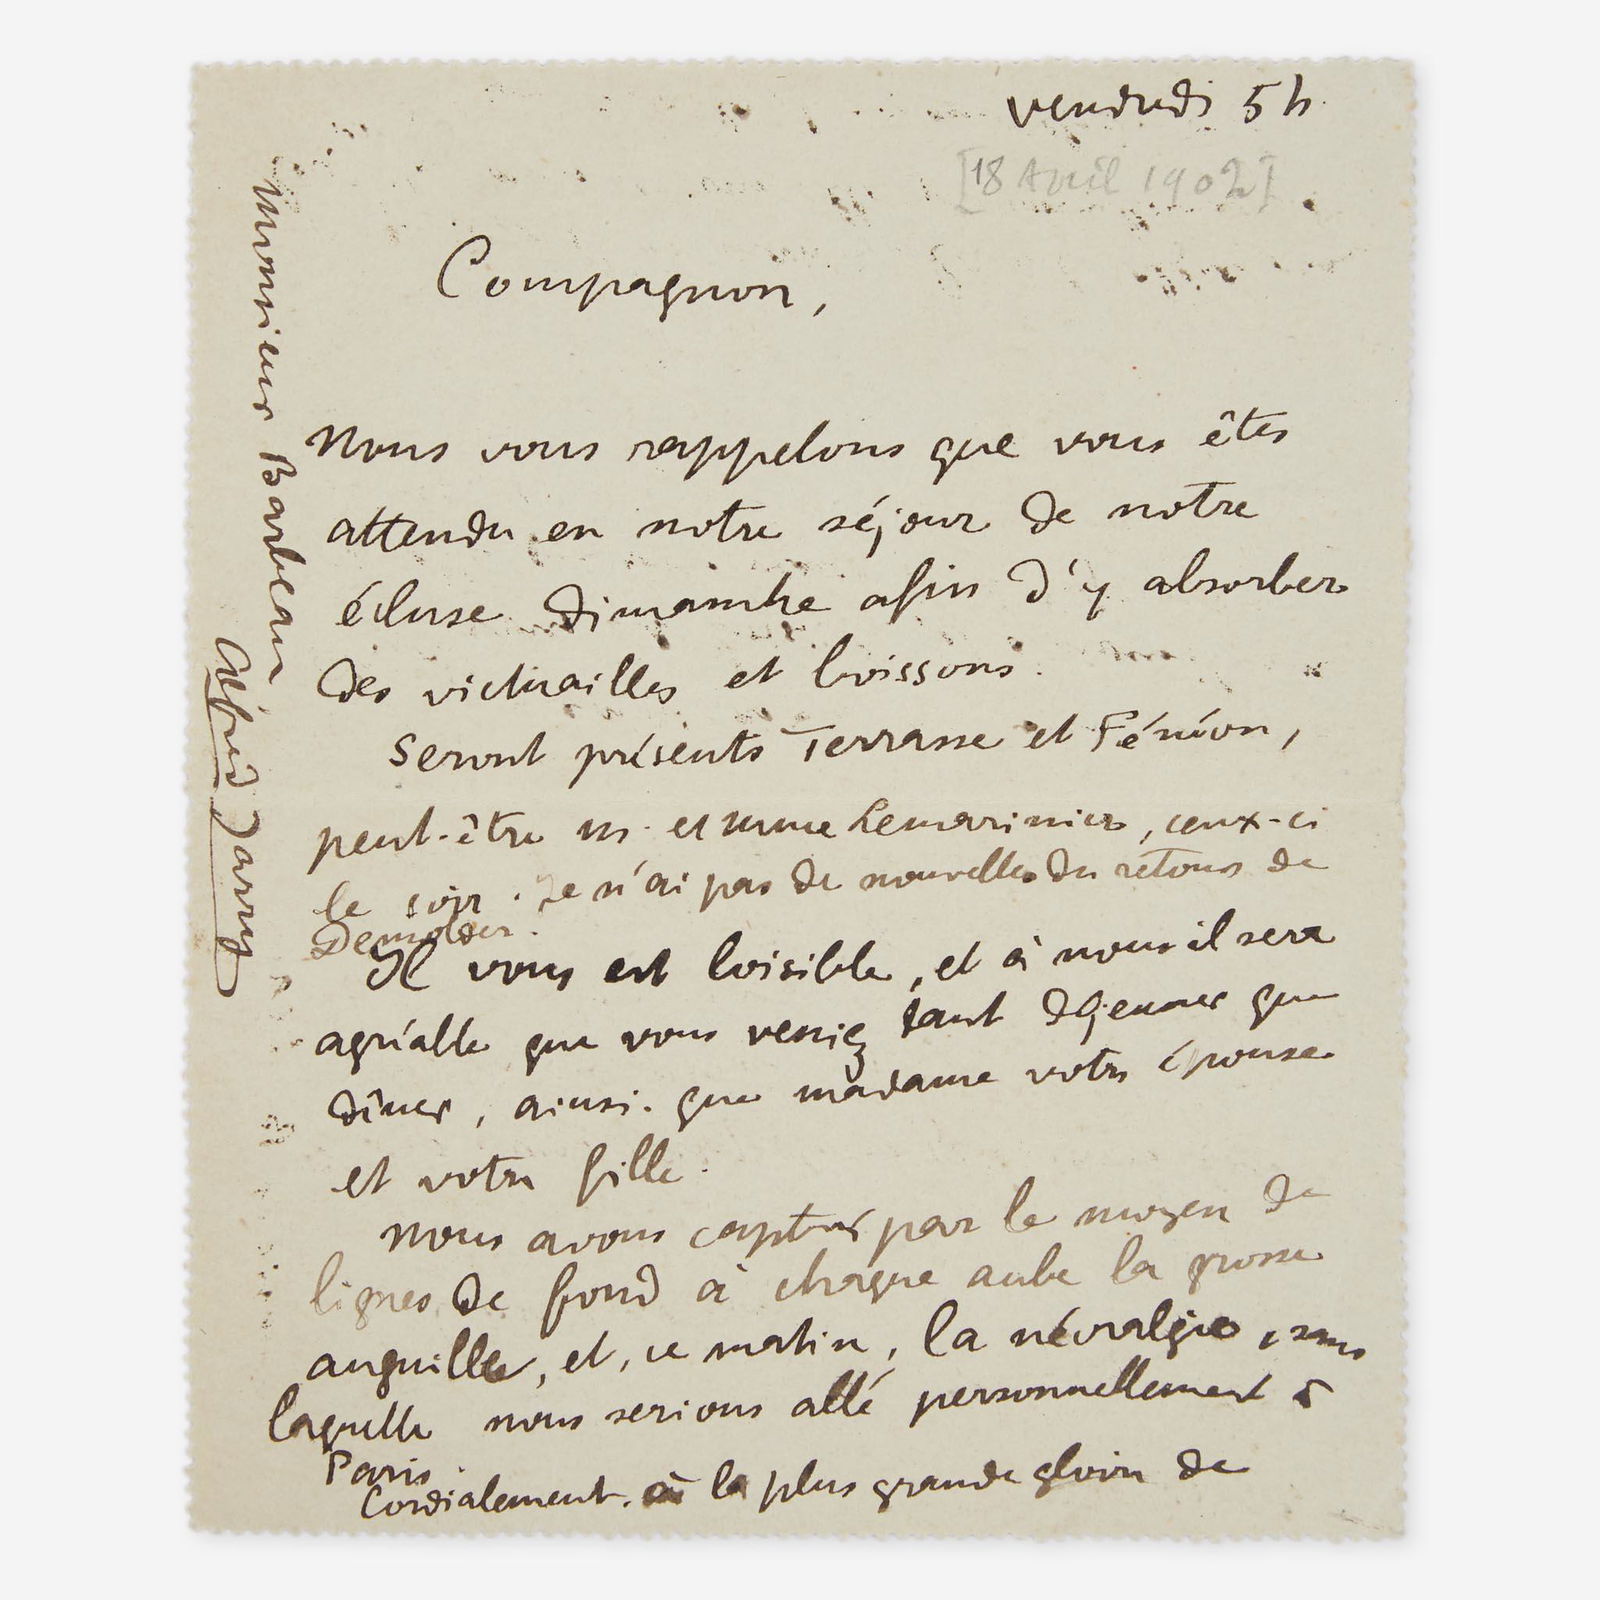 vendredi 5 h.
[18 Avril 1902]
Compagnon,
Nous vous rappelons que vous êtes
attendu en notre séjour de notre
écluse dimanche afin d'y absorber
des victuailles et boissons.
Seront présents Terrasse et Fénéon,
peut-être M. et Mme Lemarinier, ceux-ci
le soir. Je n'ai pas de nouvelles du retour de
Demolder.
Il vous est loisible, et à nous il sera
agréable que vous veniez tant déjeuner que
dîner, ainsi que madame votre épouse
et votre fille.
Nous avons capturé par le moyen de
lignes de fond à chaque aube la grosse
anguille, et, ce matin, la névralgie, sans
laquelle nous serions allé personnellement à
Paris.
Cordialement, à la plus grande gloire de
Monsieur Barbeau
Alfred Jarry